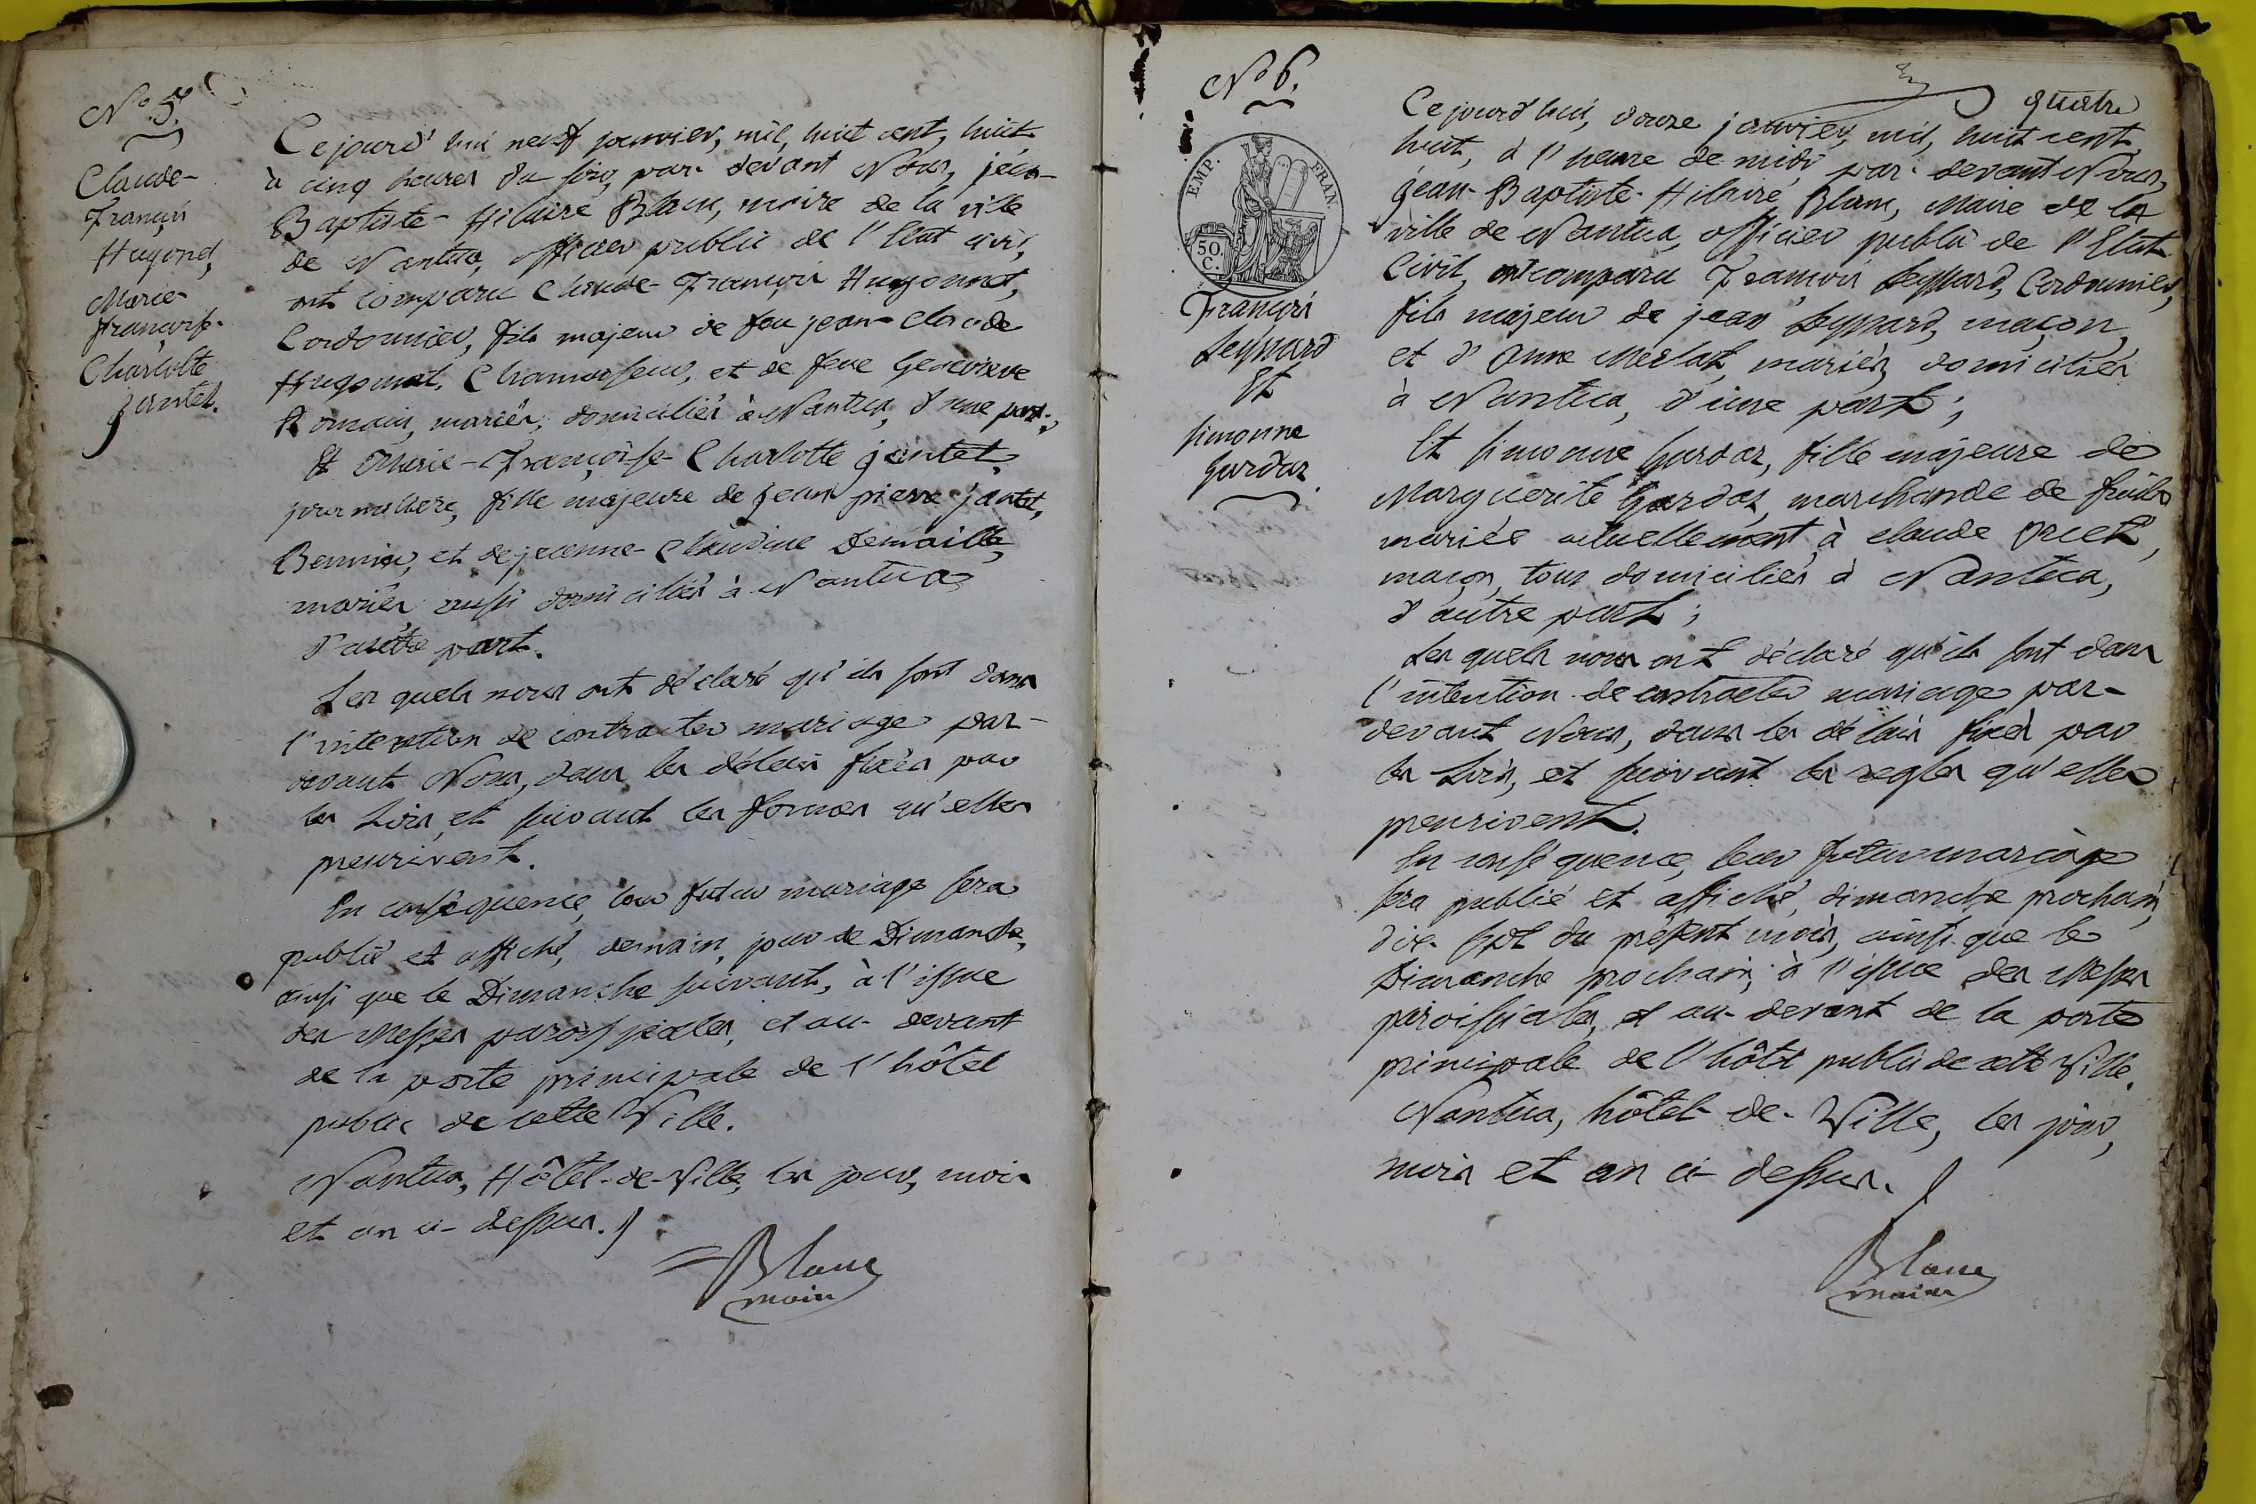 N.° 5.
Claude-
François
Hugonet,
Marie-
françoise-
Charlotte
jantet.
Cejourd'hui neuf janvier, mil, huit cent, huit
à cinq heures du soir, par-devant Nous, jean-
Baptiste-Hilaire Blanc, maire de la ville
de Nantua, officier public de l'Etat civil,
ont comparu Claude-François Hugonnet,
Cordonnier, fils majeur de feu jean-Claude
Hugonnet, Chamoiseur, et de feue Genevieve
Romain, mariés, domiciliés à Nantua, d'une part;
Et Marie-Françoise-Charlotte jantet,
journaliere, fille majeure de jean pierre jantet,
et de jeanne-Claudine Demaille,
mariés aussi domiciliés à Nantua
d'autre part.
Les quels nous ont déclaré qu'ils sont dans
l'intention de contracter mariage par-
devant Nous, dans les délais fixés par
les Lois, et suivant les formes qu'elles
prescrivent.
En conséquence, leur futur mariage sera
publié et affiché, demain, jour de Dimanche,
ainsi que le Dimanche suivant, à l'issue
des Messes paroissiales, et au-devant
de la porte principale de l'hôtel
public de cette Ville.
Nantua, Hôtel-de-Ville, les jour, mois
et an ci-dessus.
Blanc
maire
quatre
N.° 6.
EMP. FRAN.
50
C.
François
Leyssard
Et
simonne
Gurdaz.
Cejourd'hui, douze janvier, mil, huit cent,
huit, à l'heure de midi, par-devant Nous,
jean-Baptiste-Hilaire Blanc, Maire de la
ville de Nantua, officier public de l'Etat
Civil, ont comparu François Leyssard, Cordonnier,
fils majeur de jean Leyssard, maçon,
et d'Anne Merlat, mariés, domiciliés
à Nantua, d'une part;
Et simonne Gurdaz, fille majeure de
Marguerite Gurdaz, marchande de fruits
mariée actuellement à claude
maçon, tous domiciliés à Nantua,
d'autre part;
Les quels nous ont déclaré qu'ils sont dans
l'intention de contracter mariage par-
devant Nous, dans les délais fixés par
les Lois, et suivant les regles qu'elles
prescrivent.
En conséquence, leur futur mariage
sera publié et affiché, dimanche prochain,
dix-sept du présent mois, ainsi que le
Dimanche prochain, à l'issue des Messes
paroissiales, et au-devant de la porte
principale de l'hôtel public de cette Ville.
Nantua, hôtel-de-Ville, les jour,
mois et an ci-dessus.
Blanc
maire